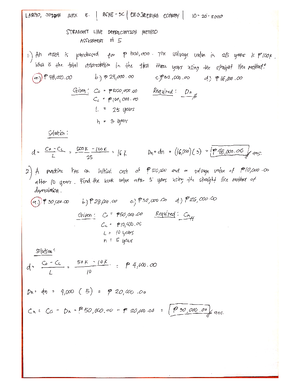 STRAIGHT LINE DEPRECIATION METHOD
ASSIGNMENT # 5
1.) An asset is purchased for ₱ 500,000. The salvage value in 25 years is ₱ 100,000.
What is the total depreciation in the first three years using the straight line method?
a.) ₱ 48,000.00 b.) ₱ 24,000.00 c.) ₱ 32,000.00 d.) ₱ 16,000.00
Given: Co = ₱ 500,000.00 Required: D3
CL = ₱ 100,000.00
L = 25 years
n = 3 years
Solution:
d = Co - CL / L = 500K - 100K / 25 = 16K
D3 = dn = (16,000)(3) = ₱ 48,000.00 ans.
2.) A machine has an initial cost of ₱ 50,000 and a salvage value of ₱ 10,000.00
after 10 years. Find the book value after 5 years using the straight line method of
depreciation.
a.) ₱ 30,000.00
Given: Co = ₱ 50,000.00 Required:
L = 10 years
n = 5 years
Solution:
d = Co - CL / L = 50K - 10K / 10 =
Dn = dn = 4,000 (5) = ₱ 20,000.00
Cn = Co - Dn = ₱ 50,000.00 - ₱ 20,000.00 = ₱ 30,000.00 ans.